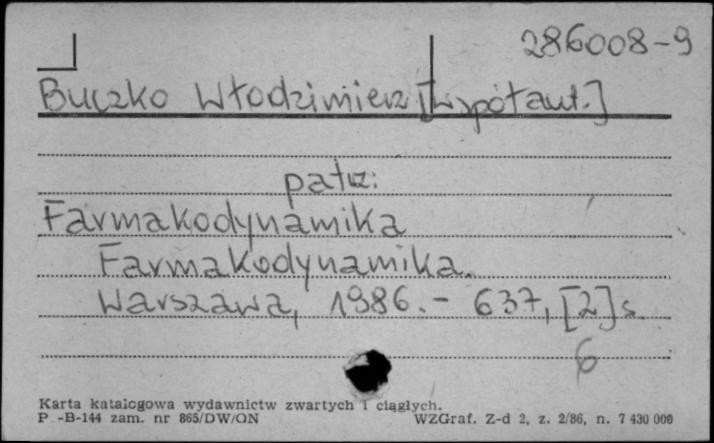 286008-9
Buczko Włodzimierz [współaut.]
patrz:
Farmakodynamika
Farmakodynamika.
Warszawa, 1986. - 637, [2] s.
6
Karta katalogowa wydawnictw zwartych i ciągłych.
P -B-144 zam. nr 865/DW/ON WZGraf. Z-d 2, z. 2/86, n. 7 430 000